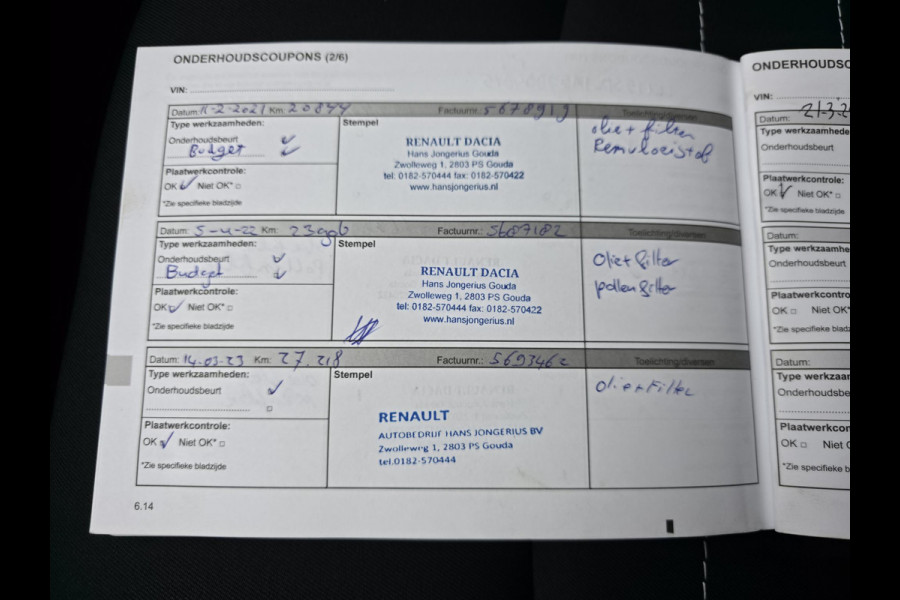 ONDERHOUDSCOUPONS (2/6)
VIN:
Datum: 11-2-2021 Km: 20844 Factuurnr.: 5678919 Toelichting/diversen
Type werkzaamheden:
Onderhoudsbeurt
Budget
Plaatwerkcontrole:
OK Niet OK*
*Zie specifieke bladzijde
Stempel
RENAULT DACIA
Hans Jongerius Gouda
Zwolleweg 1, 2803 PS Gouda
tel: 0182-570444 fax: 0182-570422
www.hansjongerius.nl
olie + filter
Remvloeistof
Datum: 5-4-22 Km: 23906 Factuurnr.: 5687182 Toelichting/diversen
Type werkzaamheden:
Onderhoudsbeurt
Budget
Plaatwerkcontrole:
OK Niet OK*
*Zie specifieke bladzijde
Stempel
RENAULT DACIA
Hans Jongerius Gouda
Zwolleweg 1, 2803 PS Gouda
tel: 0182-570444 fax: 0182-570422
www.hansjongerius.nl
Olie+filter
pollenfilter
Datum: 14-03-23 Km: 27.218 Factuurnr.: 5693462 Toelichting/diversen
Type werkzaamheden:
Onderhoudsbeurt
Plaatwerkcontrole:
OK Niet OK*
*Zie specifieke bladzijde
Stempel
RENAULT
AUTOBEDRIJF HANS JONGERIUS BV
Zwolleweg 1, 2803 PS Gouda
tel.0182-570444
Olie+Filter
6.14
ONDERHOUDSC
VIN:
Datum: 21-3-2
Type werkzaamhede
Onderhoudsbeurt
Plaatwerkcontrole:
OK Niet OK*
*Zie specifieke bladzijde
Datum:
Type werkzaamhe
Onderhoudsbeurt
Plaatwerkcontro
OK Niet OK*
*Zie specifieke bladzij
Datum:
Type werkzaa
Onderhoudsbe
Plaatwerkcon
OK Niet O
*Zie specifieke b